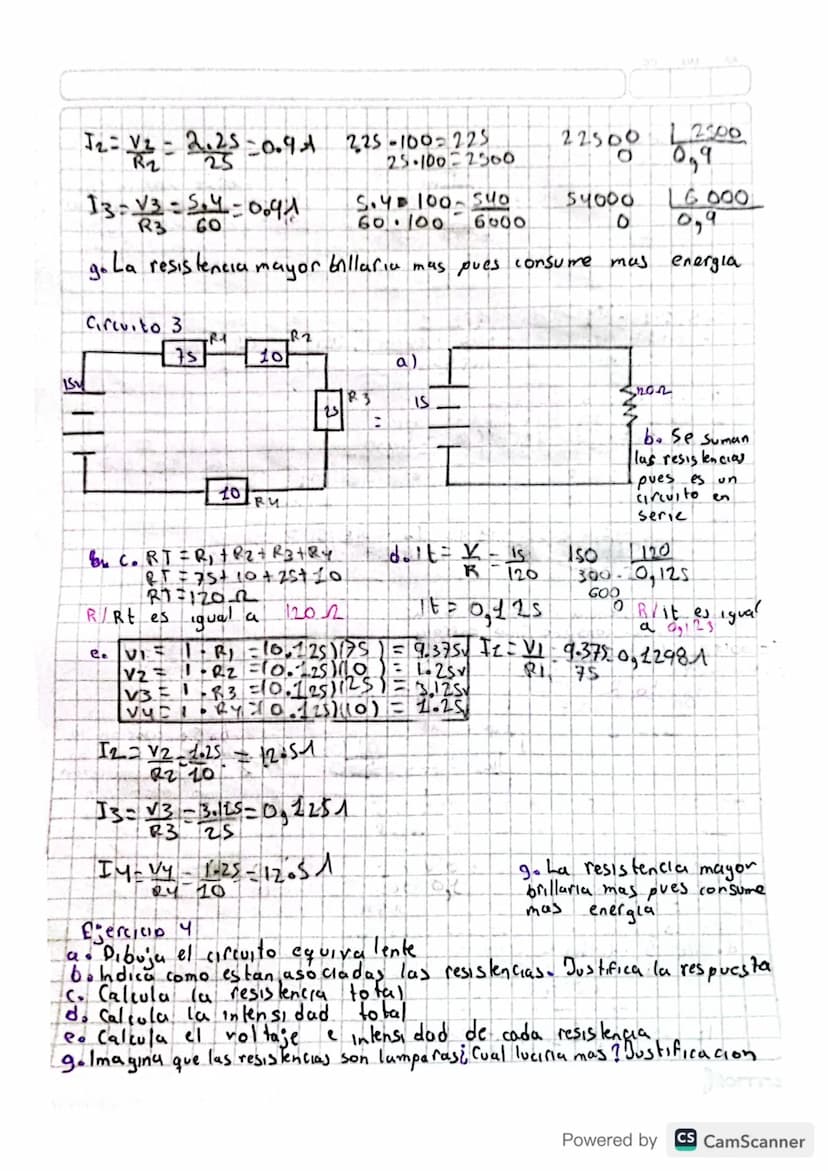 I2 = V2/R2 = 2.25/25 = 0.9 A 2,25 · 100 = 225 22500 | 2500
25 · 100 = 2500 0 0,9
I3 = V3/R3 = 5.4/60 = 0.9 A 5.4 · 100 = 540 54000 | 6000
60 · 100 = 6000 0 0,9
g. La resistencia mayor brillaria mas pues consume mas energia
Circuito 3
R1 R2
75 10 a)
15v 120Ω
25 R3 = 15
b. Se suman
las resistencias
pues es un
circuito en
serie
10 R4
c. RT = R1 + R2 + R3 + R4 d. It = V/R = 15/120 150 | 120
RT = 75 + 10 + 25 + 10 300 0,125
RT = 120 Ω 600
R/Rt es igual a 120 Ω It = 0,125 0 R/it es igual
a 0,125
e. V1 = I · R1 = (0.125)(75) = 9.375v I1 = V1/R1 9.375/75 0,1298 A
V2 = I · R2 = (0.125)(10) = 1.25v
V3 = I · R3 = (0.125)(25) = 3.125v
V4 = I · R4 = (0.125)(10) = 1.25v
I2 = V2/R2 = 1.25/10 = 12.5 A
I3 = V3/R3 = 3.125/25 = 0,125 A
I4 = V4/R4 = 1.25/10 = 12.5 A
g. La resistencia mayor
brillaria mas pues consume
mas energia
Ejercicio 4
a. Dibuja el circuito equivalente
b. Indica como estan asociadas las resistencias. Justifica la respuesta
c. Calcula la resistencia total
d. Calcula la intensidad total
e. Calcula el voltaje e intensidad de cada resistencia
g. Imagina que las resistencias son lamparas ¿Cual luciria mas? Justificacion
Powered by CS CamScanner